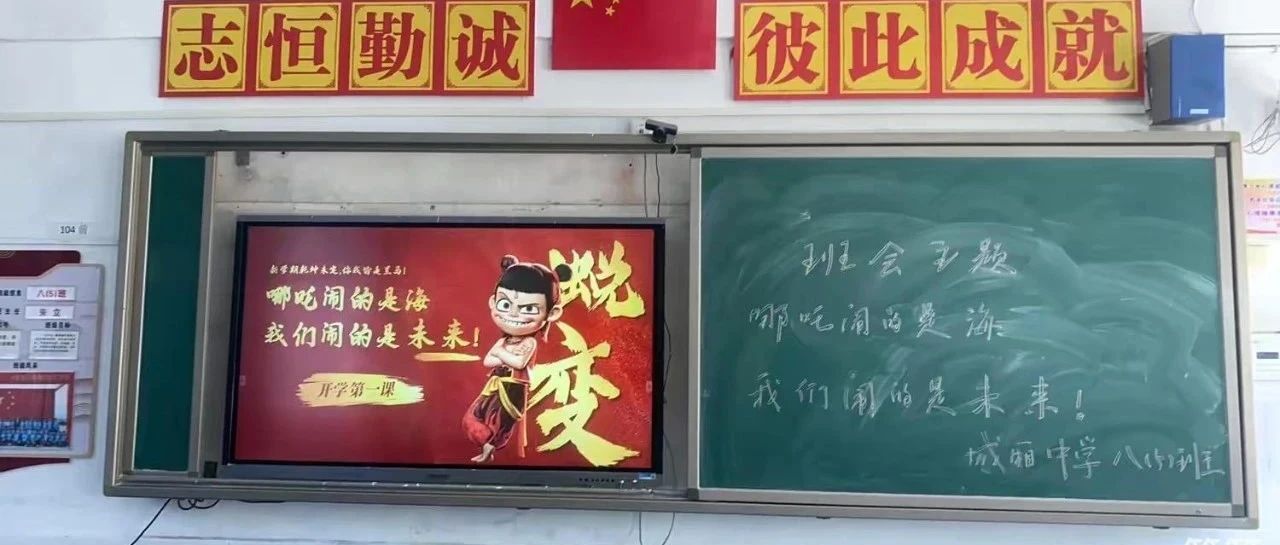 志恒勤诚
彼此成就
104前
八(5)班
新学期乾坤未定,你我皆是黑马!
哪吒闹的是海
我们闹的是未来!
开学第一课
蜕变
班会主题
哪吒闹的是海
我们闹的是未来!
城厢中学八(5)班